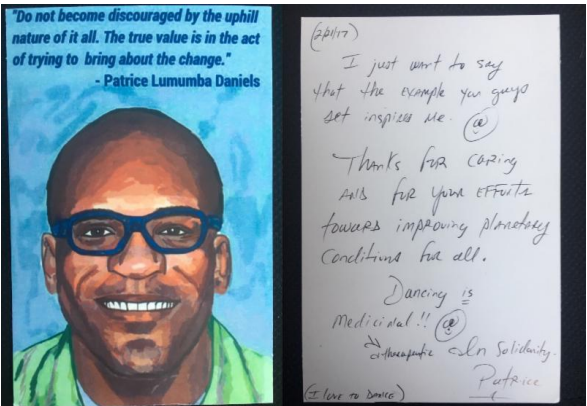 "Do not become discouraged by the uphill
nature of it all. The true value is in the act
of trying to bring about the change."
- Patrice Lumumba Daniels
I just want to say
that the example you guys
set inspires me.
Thanks for caring
and for your efforts
towards improving planetary
conditions for all.
Dancing is
medicinal!!
therapeutic In Solidarity.
Patrice
(I love to DANCE)